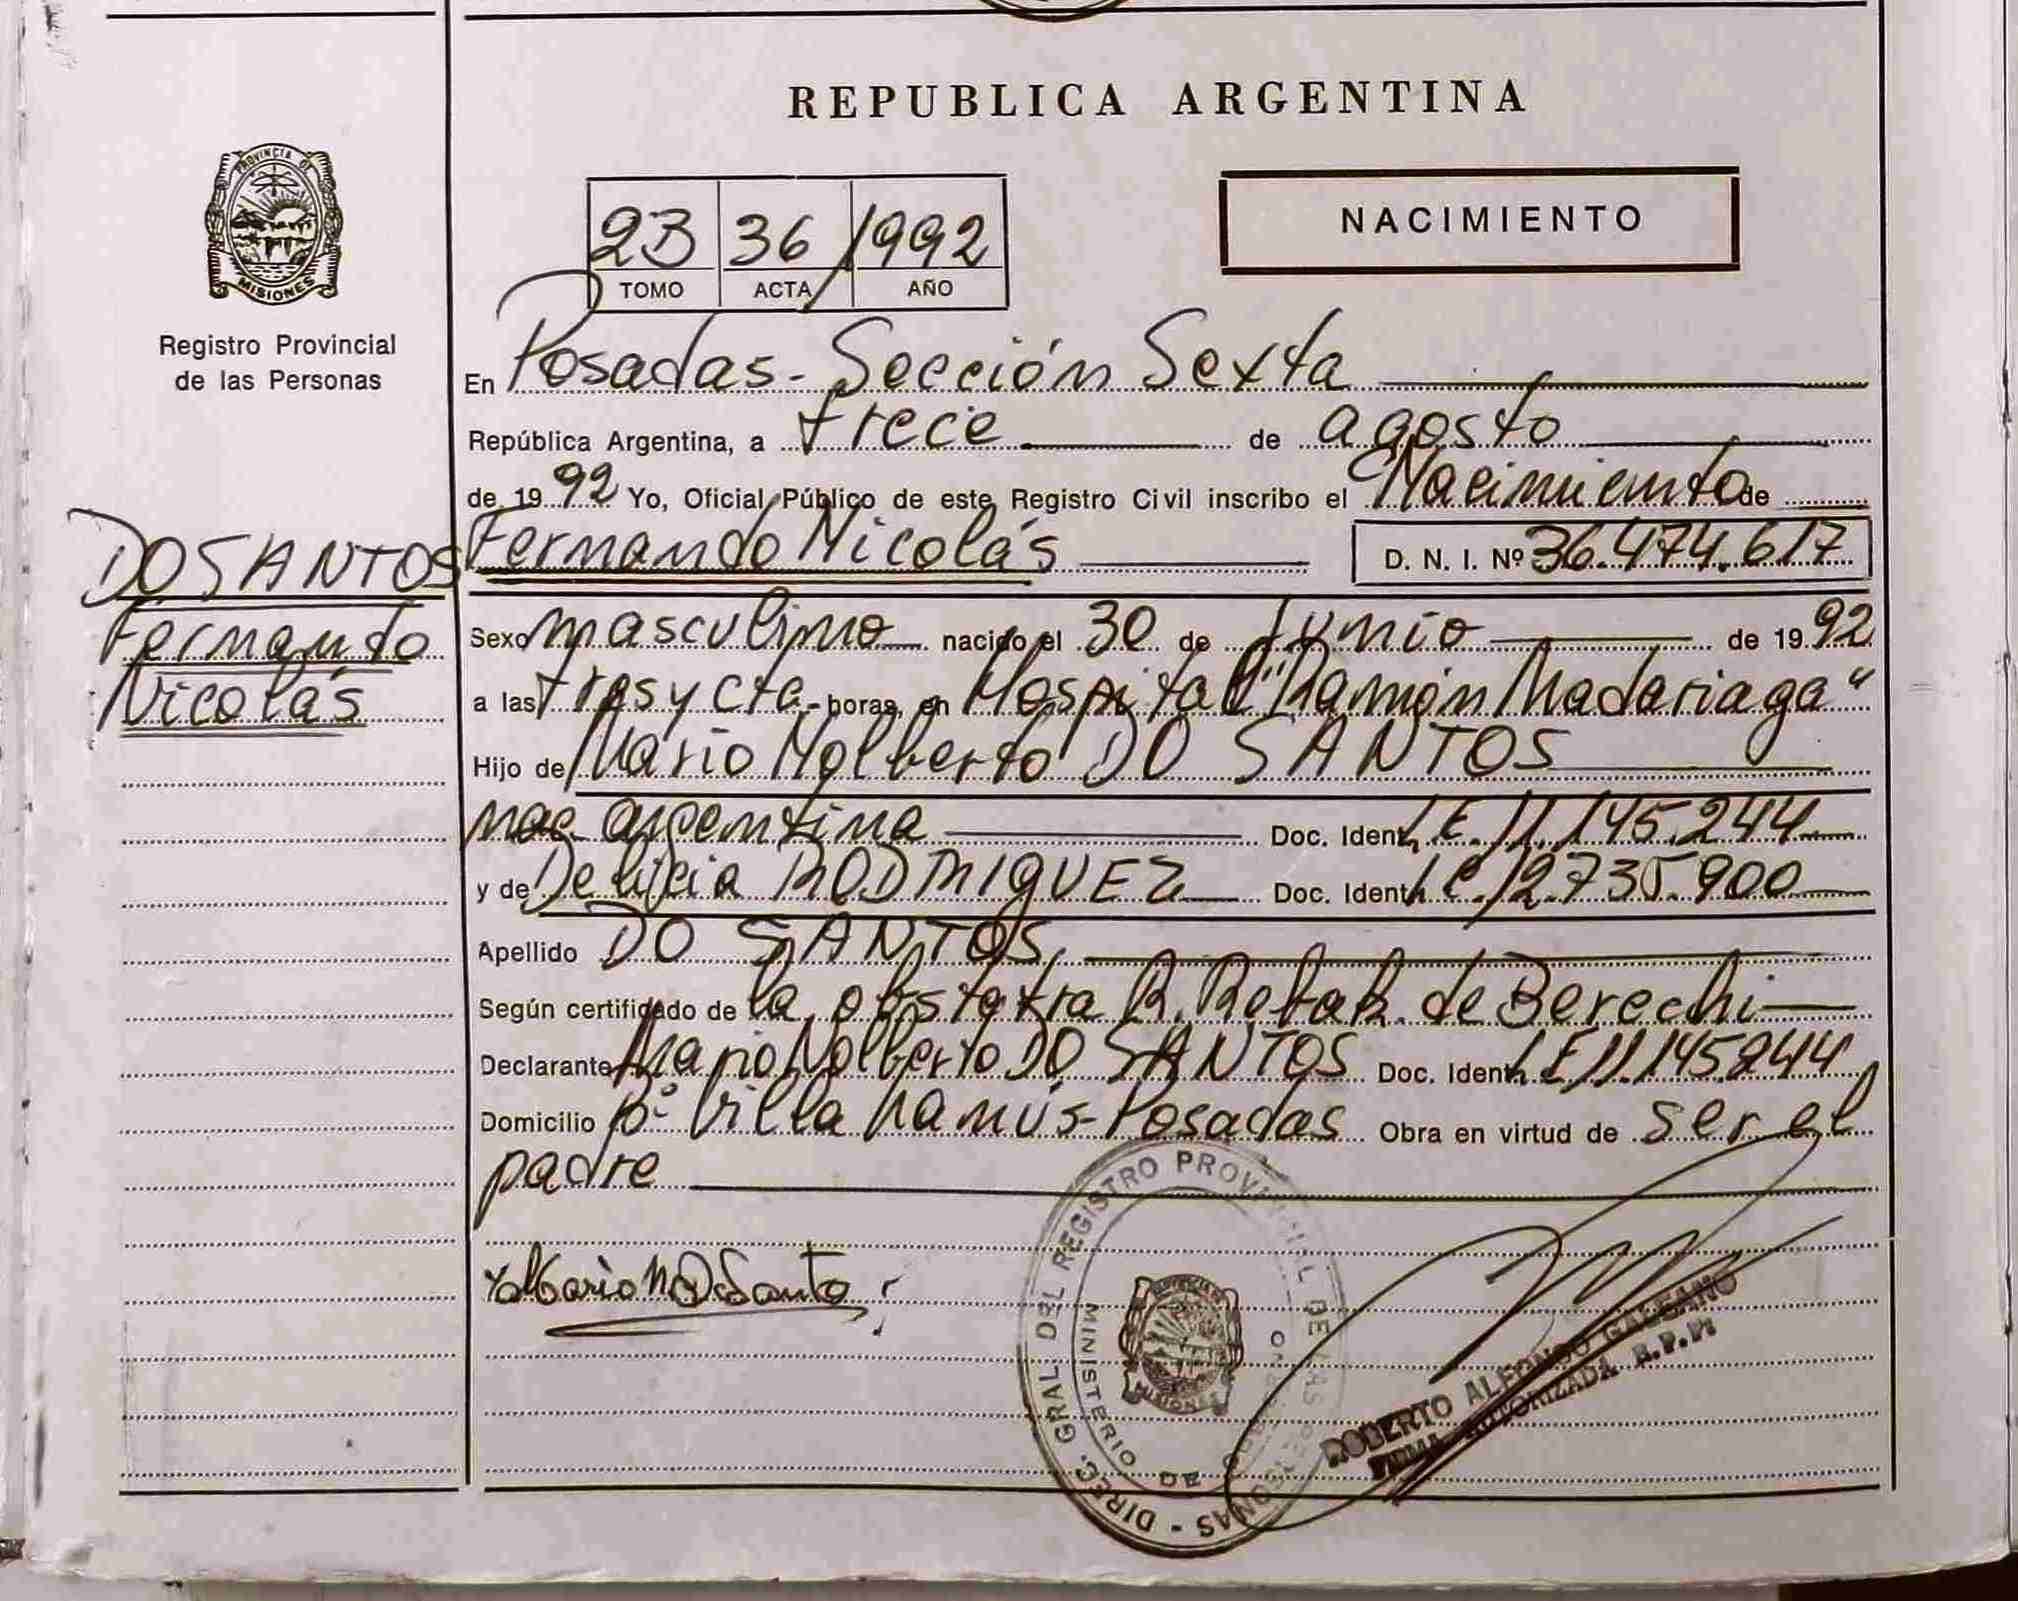 REPUBLICA ARGENTINA
PROVINCIA DE
MISIONES
Registro Provincial
de las Personas
NACIMIENTO
2B 36 1992
TOMO ACTA AÑO
En Posadas - Sección Sexta
República Argentina, a trece de agosto
de 1992 Yo, Oficial Público de este Registro Civil inscribo el Nacimiento de
DO SANTOS
Fernando
Nicolás
Fernando Nicolás D. N. I. Nº 36.474.617
Sexo masculino nacido el 30 de Junio de 1992
a las tres y cta. horas, en Hospital "Ramón Madariaga"
Hijo de Mario Nolberto DO SANTOS
nac. argentina Doc. Ident. L.E. 11.145.244
y de Delicia RODRIGUEZ Doc. Ident. L.C. 12.735.900
Apellido DO SANTOS
Según certificado de la obstetra R. de Berechi
Declarante Mario Nolberto DO SANTOS Doc. Ident. L.E 11.145.244
Domicilio Bº Villa Lanús - Posadas Obra en virtud de ser el
padre
Mario N D Santo
DIREC. GRAL DEL REGISTRO PROVINCIAL DE LAS PERSONAS
MINISTERIO DE GOBIERNO
MISIONES
ROBERTO ALFONSO GALEANO
FIRMA AUTORIZADA R.P.P.